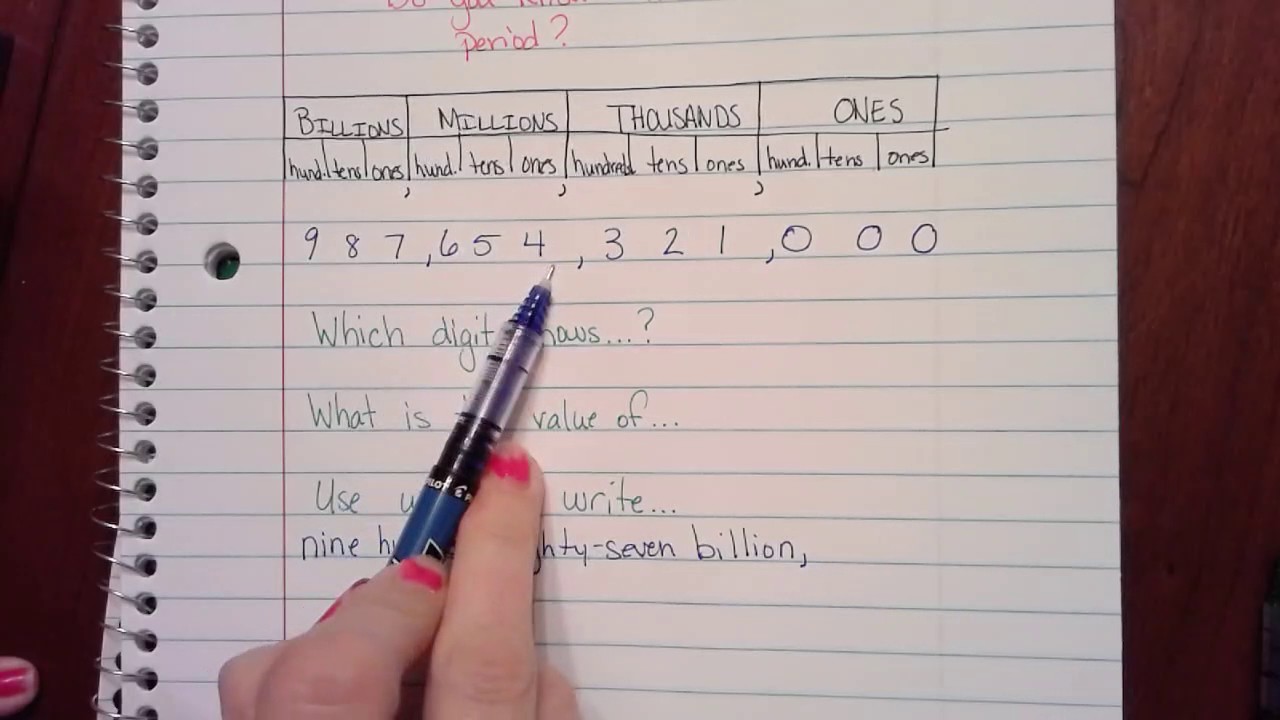 Do you know
period?
BILLIONS MILLIONS THOUSANDS ONES
hund. tens ones, hund. tens ones, hundred tens ones, hund. tens ones
987,654,321,000
Which digit ...?
What is value of...
Use write...
nine billion,
PILOT